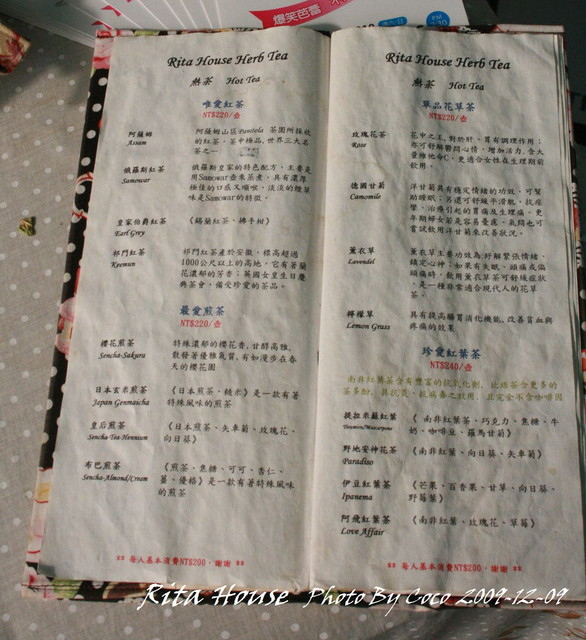 爆笑芭蕾
Rita House Herb Tea
熱茶 Hot Tea
唯愛紅茶
NT$220/壺
阿薩姆
Assam
阿薩姆山區
茶園所採收
的紅茶，茶中極品，世界三大名
茶之一
俄羅斯紅茶
Samowar
俄羅斯皇家的特色配方，主要是
用Samowar壺來蒸煮，具有濃厚
極佳的口感又順喉，淡淡的煙草
味是Samowar的特徵。
皇家伯爵紅茶
Earl Grey
《錫蘭紅茶、佛手柑》
祁門紅茶
Keemun
祁門紅茶產於安徽，標高超過
1000公尺以上的高地，它有著蘭
花濃郁的芳香；英國女皇生日慶
典茶會，備受珍愛的茶品。
最愛煎茶
NT$220/壺
櫻花煎茶
Sencha-Sakura
特殊濃郁的櫻花香，甘醇高雅，
散發著優雅氣質，有如漫步在春
天的櫻花園
日本玄米煎茶
Japan Genmaicha
《日本煎茶、糙米》是一款有著
特殊風味的煎茶
皇后煎茶
Sencha Tea-Hennsun
《日本煎茶、矢車菊、玫瑰花、
向日葵》
布巴煎茶
Sencha-Almond/Cream
《煎茶、焦糖、可可、杏仁、
薑、優格》是一款有著特殊風味
的煎茶
** 每人基本消費NT$200，謝謝 **
Rita House Herb Tea
熱茶 Hot Tea
單品花草茶
NT$220/壺
玫瑰花茶
Rose
花中之王，對於肝、胃有調理作用；
亦可舒解鬱悶心情，增加活力，含大
量維他命C，更適合女性在生理期前
飲用。
德國甘菊
Camomile
洋甘菊具有穩定情緒的功效，可幫
助睡眠；另還可舒緩平滑肌，抗痙
攣，治療引起的胃痛及生理痛，更
年期婦女若是容易憂慮、氣悶也可
嘗試飲用洋甘菊來改善狀況。
薰衣草
Lavendel
薰衣草主要功效為紓解緊張情緒、
鎮定心神，如果有失眠、頭痛或偏
頭痛時，飲用薰衣草茶可舒緩症狀
，是一種非常適合現代人的花草
茶。
檸檬草
Lemon Grass
具有提高腸胃消化機能，改善貧血與
疼痛的效果
珍愛紅葉茶
NT$240/壺
南非紅葉茶含有豐富的抗氧化劑，比綠茶含更多的
茶多酚，具抗炎、抗病毒之效用，且完全不含咖啡因
提拉米蘇紅葉
Tiramisu/Mascarpone
《 南非紅葉茶、巧克力、焦糖、牛
奶、咖啡豆、羅馬甘菊》
野地安神花茶
Paradiso
《南非紅葉、向日葵、矢車菊》
伊豆紅葉茶
Ipanema
《芒果、百香果、甘草、向日葵、
野莓葉》
阿飛紅葉茶
Love Affair
《南非紅葉、玫瑰花、草莓》
** 每人基本消費NT$200，謝謝 **
Rita House Photo By Coco 2009-12-09